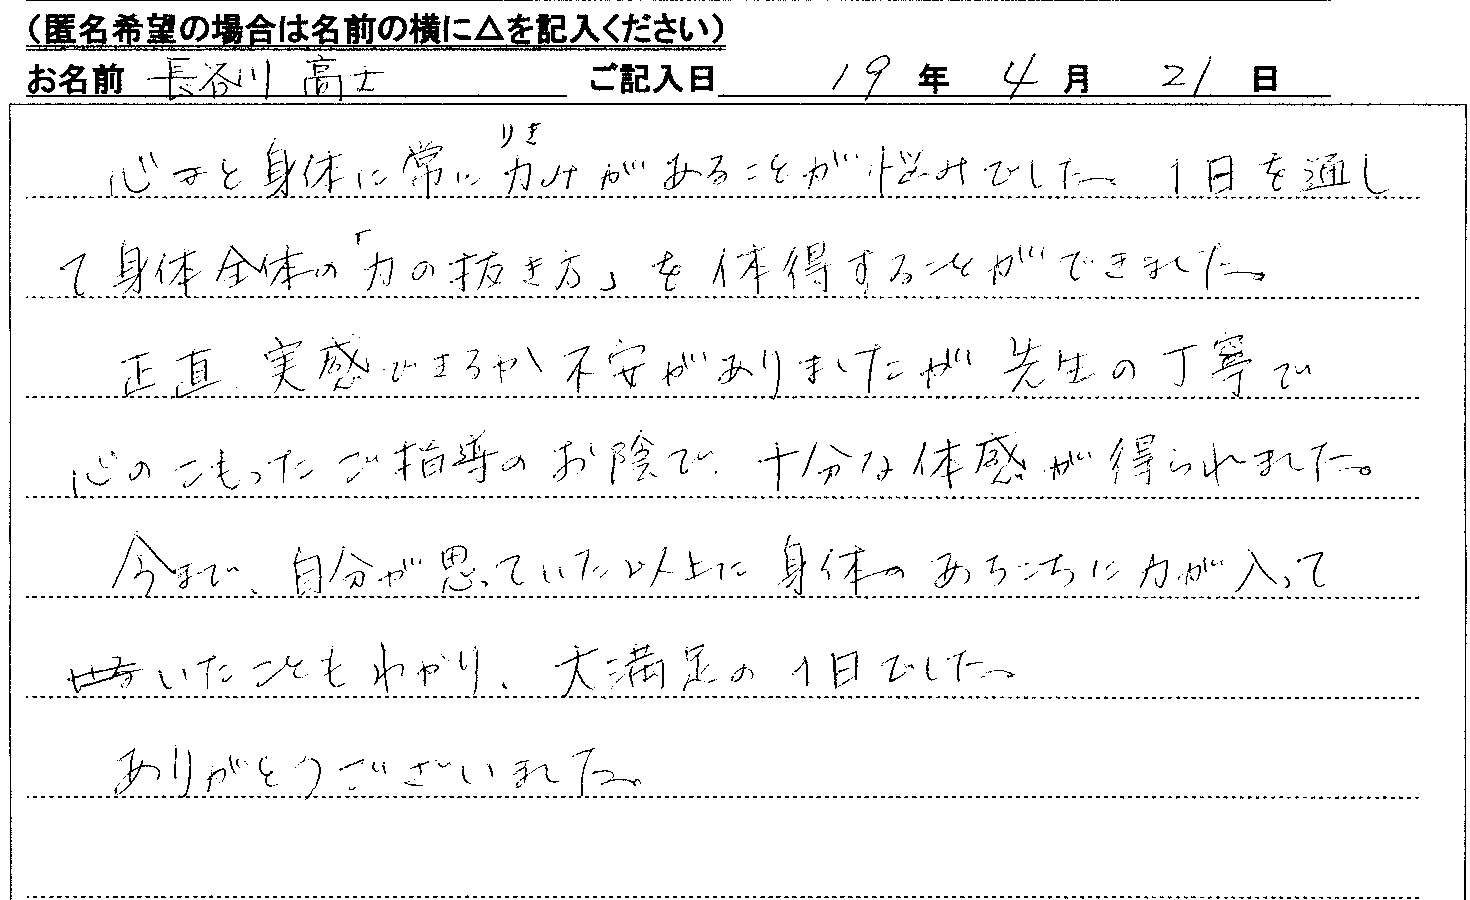 （匿名希望の場合は名前の横に△を記入ください）
お名前 長谷川 高士 ご記入日 19 年 4 月 21 日
りき
心と身体に常に力みがあることが悩みでした。1日を通し
て身体全体の「力の抜き方」を体得することができました。
正直、実感できるか不安がありましたが先生の丁寧で
心のこもったご指導のお陰で、十分な体感が得られました。
今まで、自分が思っていた以上に身体のあちこちに力が入って
いたこともわかり、大満足の1日でした。
ありがとうございました。